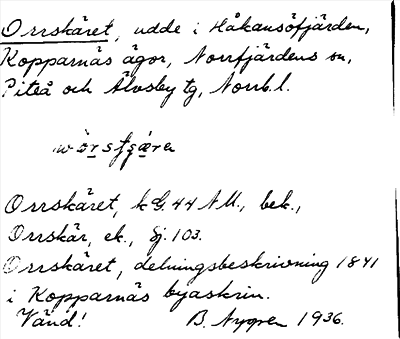 Orrskäret, udde i Håkansöfjärden,
Kopparnäs ägor, Norrfjärdens sn,
Piteå och Älvsby tg, Norrb. l.
Orrskäret, k G. 44 NU., bek.,
Orrskär, ek., Sj. 103.
Orrskäret, delningsbeskrivning 1841
i Kopparnäs byaskrin.
Vänd! B. Nygren 1936.